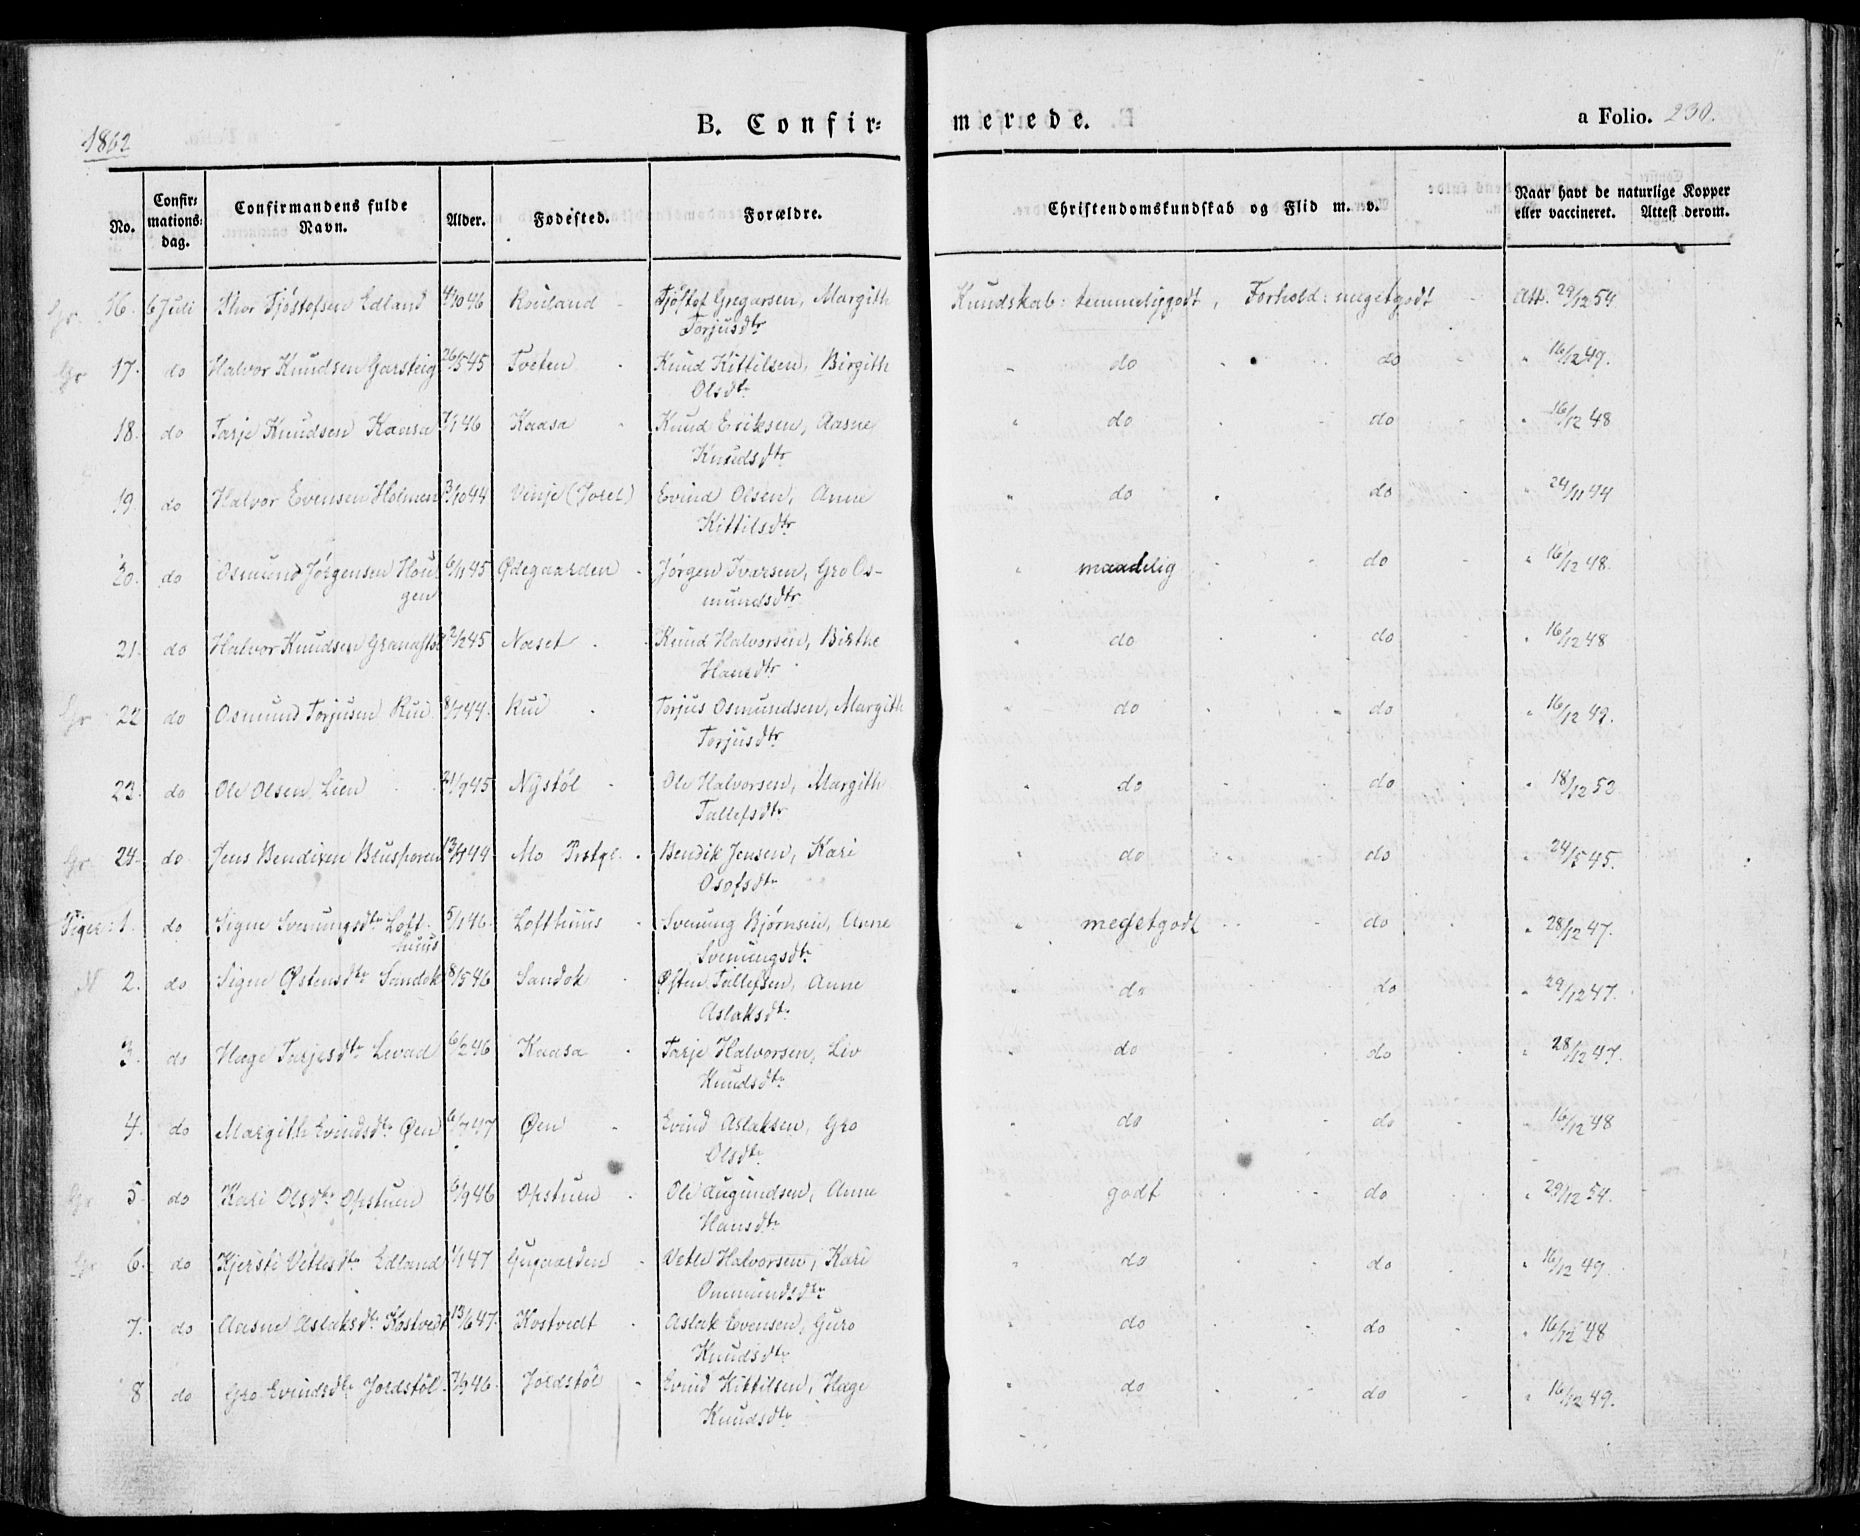 1862
B. Confir-
merede.
a Folio. 230.
No.
Confir-
mations-
dag.
Confirmandens fulde
Navn.
Alder.
Fødested.
Forældre.
Christendomskundskab og Flid m. v.
Naar havt de naturlige Kopper
eller vaccineret. Attest derom.
Gr. 16. 6 Juli Thor Tjöstofsen Edland 4/10 46 Rouland Tjöstof Gregarsen, Margith Kundskab: temmeliggodt, Forhold: megetgodt Att. 29/12 54
Torjusdtr
Gr 17. do Halvor Knudsen Garsteig 26/5 45 Tveten Knud Kittilsen, Birgith do do " 16/12 49.
Olsdtr
18. do Tarje Knudsen Kaasa 7/1 46 Kaasa Knud Eriksen, Aasne " do do " 16/12 48
Knudsdtr
19. do Halvor Evensen Holmen 3/10 44 Vinje Evind Olsen, Anne " do do " 24/11 44
Kittilsdtr
20. do Osmund Jørgensen Hou- 6/11 45 Ødegaarden Jørgen Ivarsen, Gro Os- " maadelig do " 16/12 48.
gen mundsdtr
21. do Halvor Knudsen 2/2 45 Næset Knud Halvorsen, Birthe " do do " 16/12 48
Hansdtr
Gr 22 do Osmund Torjusen Rui 8/7 44. Rui Torjus Osmundsen, Margith " do do " 16/12 49.
Torjusdtr
23. do Ole Olsen Lien 21/9 45 Nystöl Ole Halvorsen, Margith " do do " 18/12 52
Tallefsdtr
Gr. 24. do Jens Bendixen 13/7 44 Mo Prstgl. Bendik Jensen, Kari " do do " 24/5 45.
Osofsdtr
Piger: 1. do Signe Svenungsdtr Loft- 5/1 46. Lofthuus Svenung Bjørnsen, Anne " megetgodt do " 28/12 47.
huus Svenungsdtr
N 2. do Signe Østensdtr Sandok 8/5 46 Sandok Østen Tallefsen, Anne " do do " 29/12 47.
Aslaksdtr
3. do Hage Tarjesdtr Levad 6/2 46 Kaasa Tarje Halvorsen, Liv " do do " 28/12 47.
Knudsdtr
4. do Margith Evindsdtr Øen 6/7 47 Øen Evind Aslaksen, Gro " do do " 16/12 48
Olsdtr
Gr 5. do Kari Olsdtr Opstuen 6/9 46 Opstuen Ole Augundsen, Anne " godt do " 29/12 54.
Hansdtr
Gr 6. do Kjersti Vetlesdtr Edland 1/1 47 Gugaarden Vetle Halvorsen, Kari " do do " 16/12 49.
Ommundsdtr
7. do Aasne Aslaksdtr Kostvedt 13/6 47. Kostvedt Aslak Evensen, Guro do do " 16/12 48
Knudsdtr
8 do Gro Evindsdtr Joldstöl 7/9 46 Joldstöl Evind Kittilsen, Hage " do do " 16/12 49.
Knudsdtr